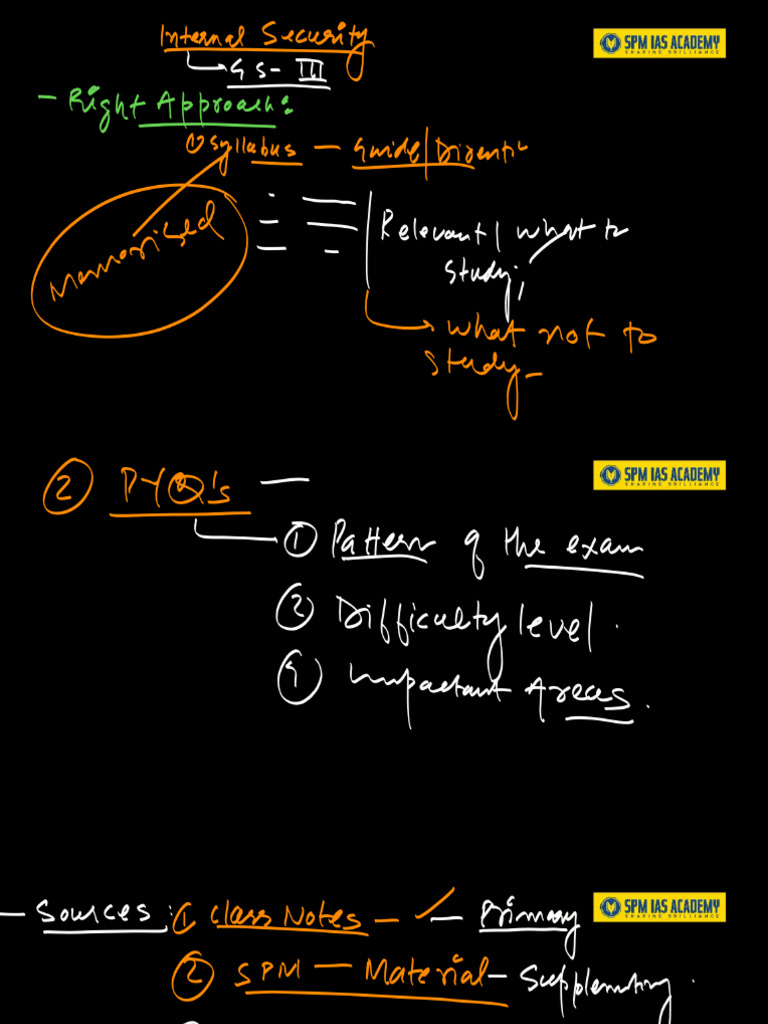 Internal Security
SPM IAS ACADEMY
GS-III
- Right Approach:
① Syllabus - Guide/Directi
Memorised
Relevant | what to
study;
what not to
study-
② PYQ's -
SPM IAS ACADEMY
SHARING BRILLIANCE
① Pattern of the exam
② Difficulty level.
Important Areas.
- Sources: ① Class Notes - ✓ - Primary
SPM IAS ACADEMY
SHARING BRILLIANCE
② SPM - Material - Supplementing.